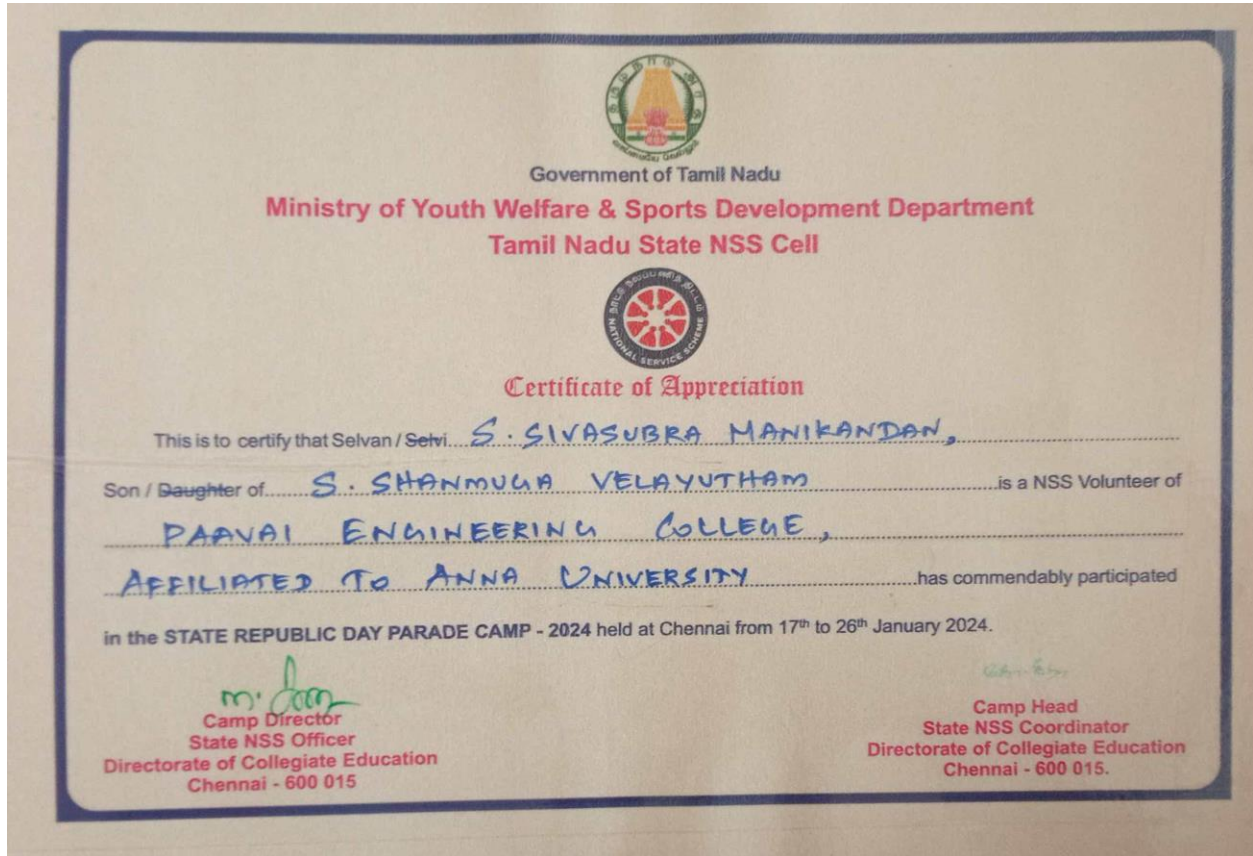 தமிழ்நாடு அரசு
வாய்மையே வெல்லும்
Government of Tamil Nadu
Ministry of Youth Welfare & Sports Development Department
Tamil Nadu State NSS Cell
நாட்டு நலப்பணித் திட்டம்
NATIONAL SERVICE SCHEME
Certificate of Appreciation
This is to certify that Selvan / Selvi S. SIVASUBRA MANIKANDAN,
Son / Daughter of S. SHANMUGA VELAYUTHAM is a NSS Volunteer of
PAAVAI ENGINEERING COLLEGE,
AFFILIATED TO ANNA UNIVERSITY has commendably participated
in the STATE REPUBLIC DAY PARADE CAMP - 2024 held at Chennai from 17th to 26th January 2024.
Camp Director
State NSS Officer
Directorate of Collegiate Education
Chennai - 600 015
Camp Head
State NSS Coordinator
Directorate of Collegiate Education
Chennai - 600 015.